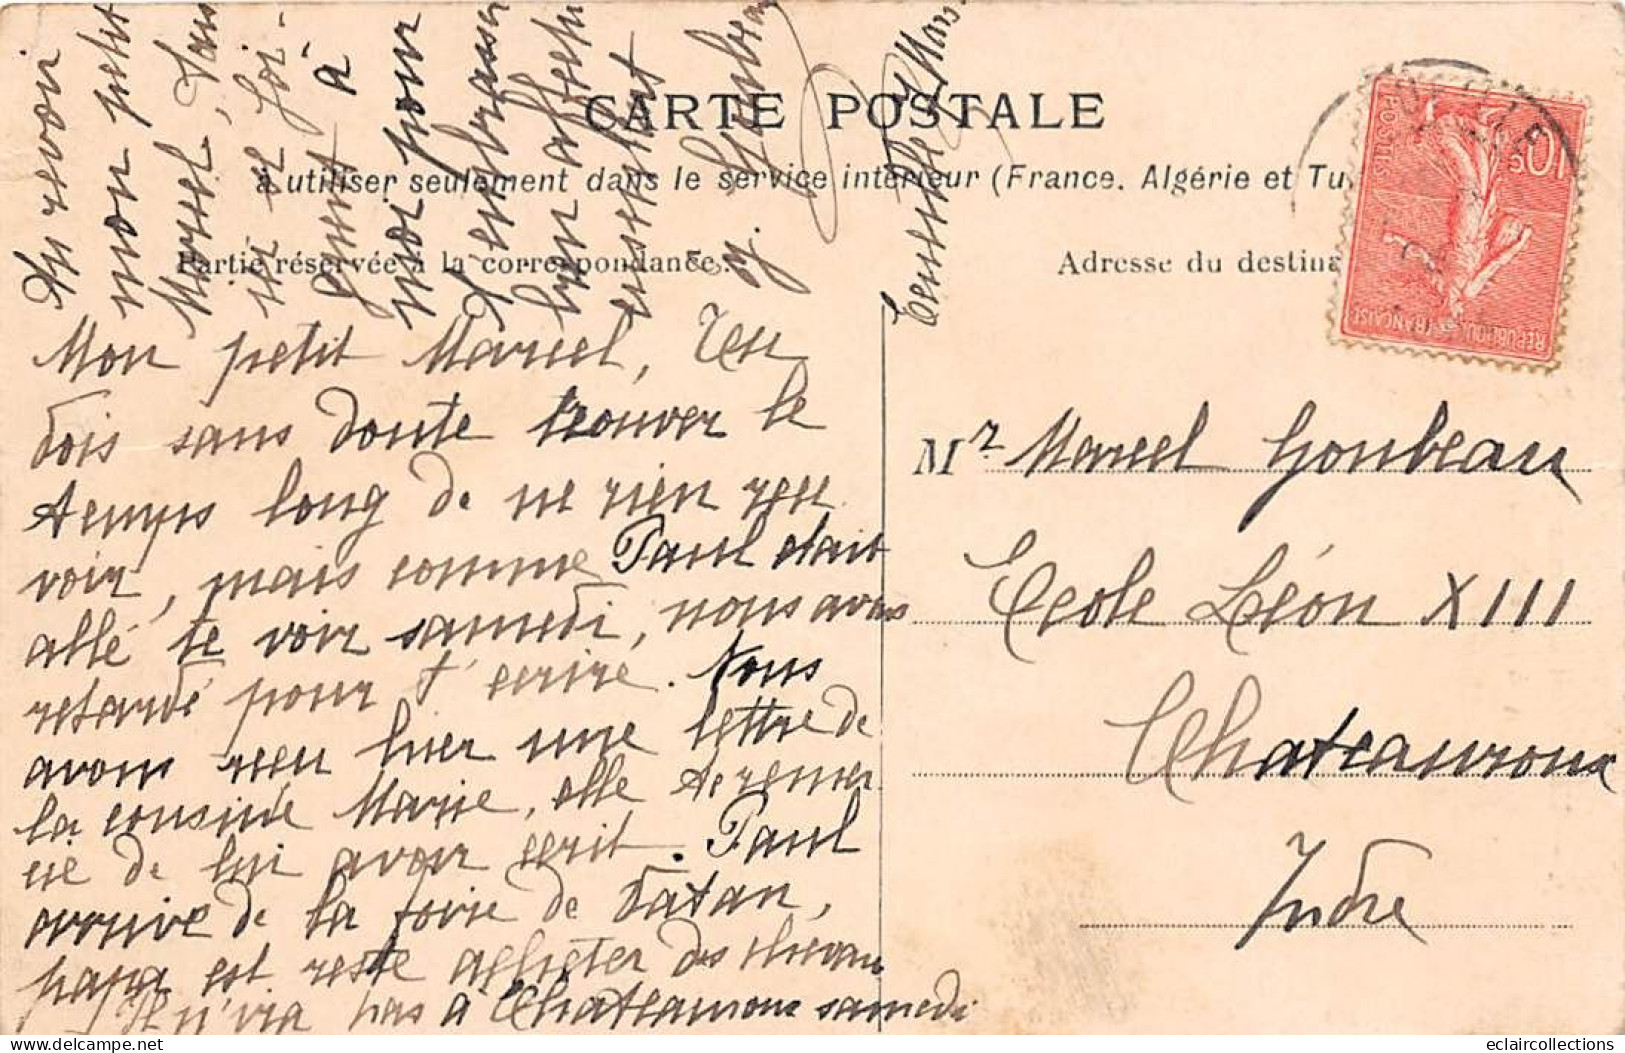 CARTE POSTALE
à utiliser seulement dans le service intérieur (France. Algérie et Tu
Partie réservée à la correspondance.
Adresse du destina
Mon petit Marcel, Tu
dois sans doute trouver le
temps long de ne rien rece
voir, mais comme Paul était
allé te voir samedi, nous avons
retardé pour t'écrire. Nous
avons reçu hier une lettre de
la cousine Marie, elle te remer
cie de lui avoir écrit. Paul
arrive de la foire de Vatan,
papa est resté acheter des chevaux
Il n'ira pas à Chateauroux samedi
Au revoir
mon petit
Marcel, Paul
se joi-
gnent à
moi pour
t'embrasser
bien affectu
eusement
g. Goubeau
10c
POSTES
REPUBLIQUE FRANÇAISE
Mr Marcel Goubeau
Ecole Léon XIII
Chateauroux
Indre
eclaircollections
delcampe.net